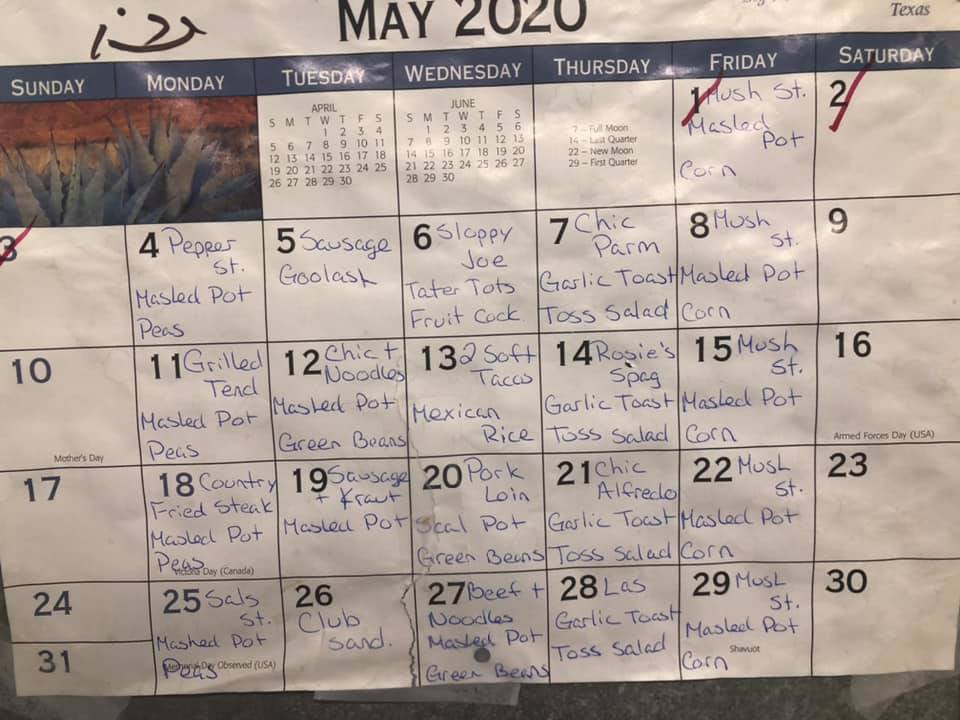 Texas
MAY 2020
SUNDAY MONDAY TUESDAY WEDNESDAY THURSDAY FRIDAY SATURDAY
APRIL
S M T W T F S
1 2 3 4
5 6 7 8 9 10 11
12 13 14 15 16 17 18
19 20 21 22 23 24 25
26 27 28 29 30
JUNE
S M T W T F S
1 2 3 4 5 6
7 8 9 10 11 12 13
14 15 16 17 18 19 20
21 22 23 24 25 26 27
28 29 30
7 – Full Moon
14 – Last Quarter
22 – New Moon
29 – First Quarter
1 Mush St.
Mashed
Pot
Corn
2
3
4 Pepper
St.
Mashed Pot
Peas
5 Sausage
Goolash
6 Sloppy
Joe
Tater Tots
Fruit Cock
7 Chic
Parm
Garlic Toast
Toss Salad
8 Mush
St.
Mashed Pot
Corn
9
10
Mother's Day
11 Grilled
Tend
Mashed Pot
Peas
12 Chic +
Noodles
Mashed Pot
Green Beans
13 2 Soft
Tacco
Mexican
Rice
14 Rosie's
Spag
Garlic Toast
Toss Salad
15 Mush
St.
Mashed Pot
Corn
16
Armed Forces Day (USA)
17
18 Country
Fried Steak
Mashed Pot
Peas
Victoria Day (Canada)
19 Sausage
+ Kraut
Mashed Pot
20 Pork
Loin
Scal Pot
Green Beans
21 Chic
Alfredo
Garlic Toast
Toss Salad
22 Mush
St.
Mashed Pot
Corn
23
24
25 Sals
St.
Mashed Pot
Memorial Day Observed (USA)
Peas
26
Club
Sand.
27 Beef +
Noodles
Mashed Pot
Green Beans
28 Las
Garlic Toast
Toss Salad
29 Mush
St.
Mashed Pot
Shavuot
Corn
30
31